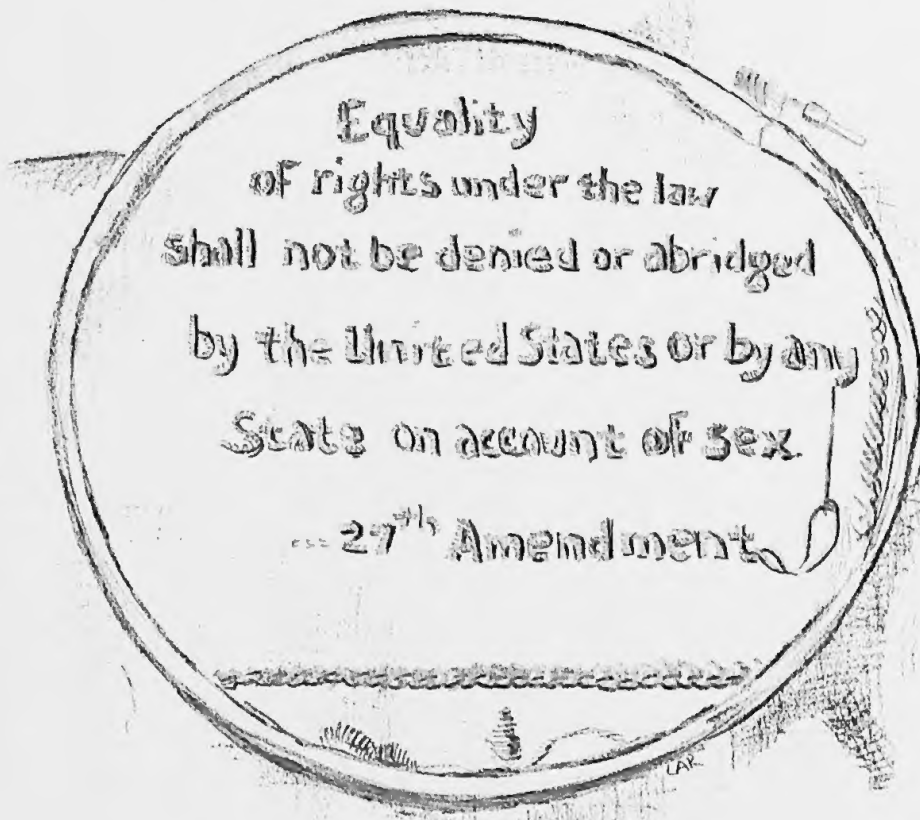 Equality
of rights under the law
shall not be denied or abridged
by the United States or by any
State on account of sex
--- 27th Amendment
LAR